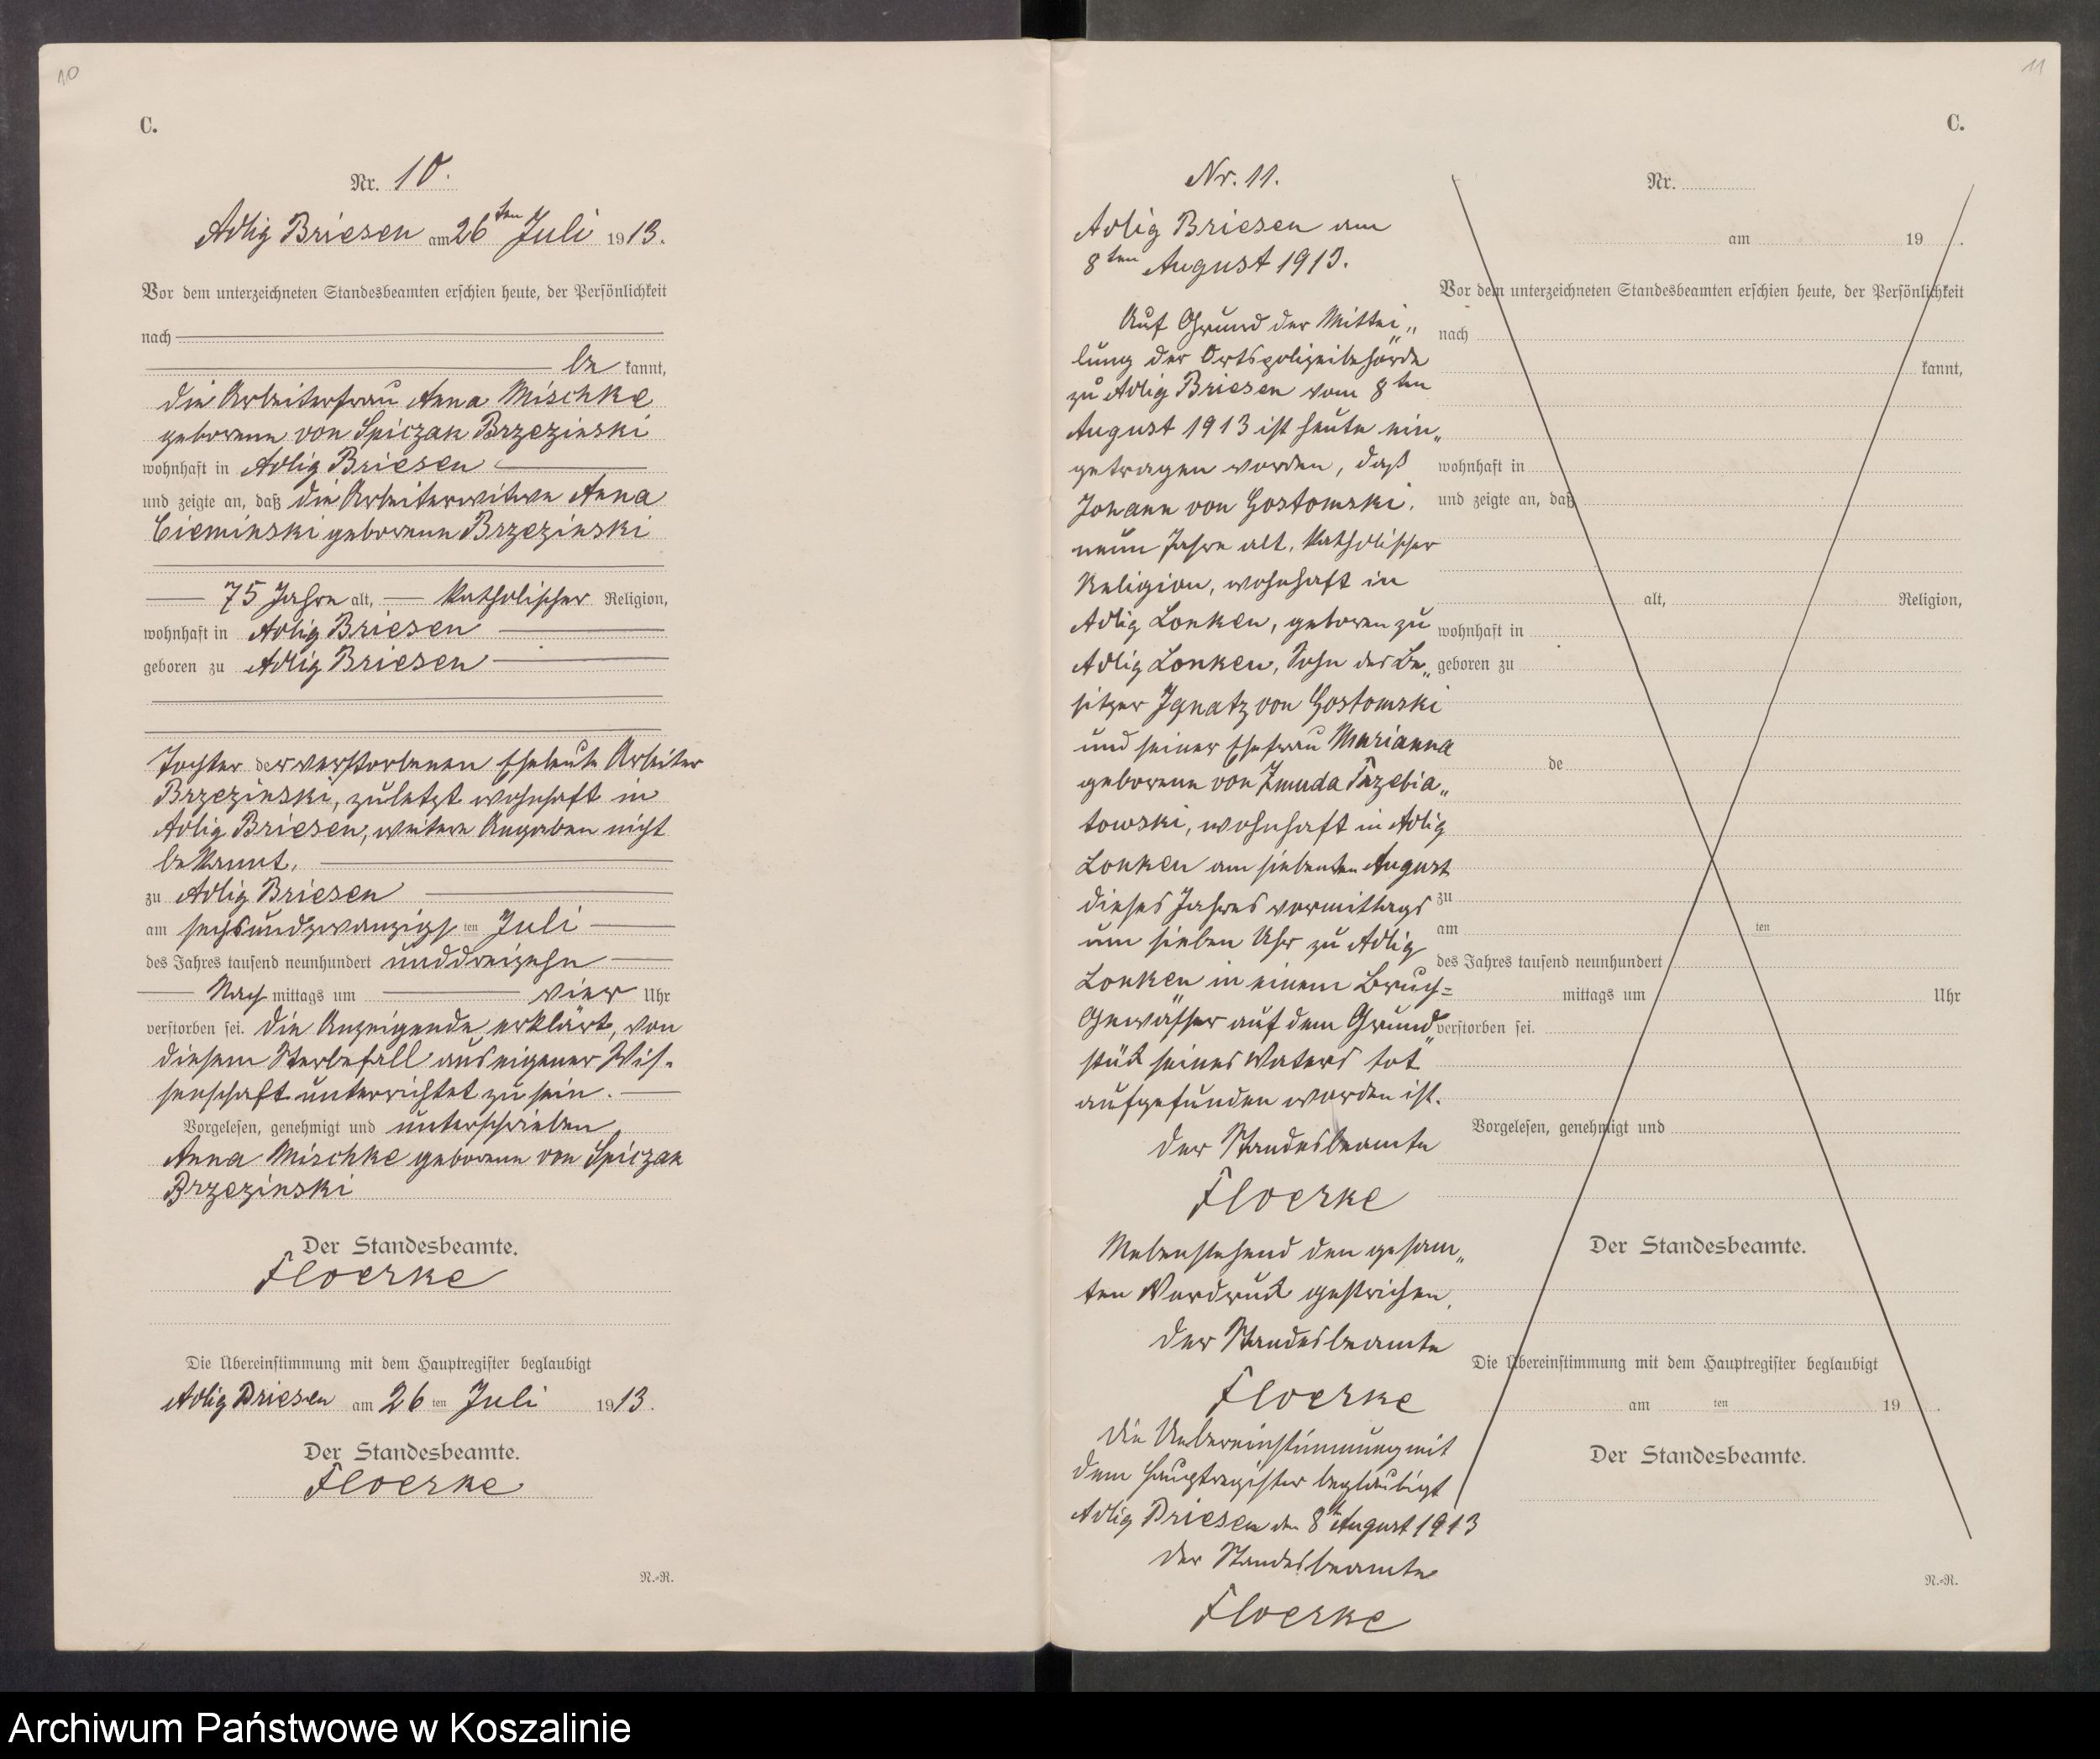 10
C.
Nr. 10.
Adlig Briesen am 26ten Juli 1913.
Vor dem unterzeichneten Standesbeamten erschien heute, der Persönlichkeit
nach
be kannt,
die Arbeiterfrau Anna Mischke
geborene von Spiczak Brzezinski
wohnhaft in Adlig Briesen
und zeigte an, daß die Arbeiterwitwe Anna
Cieminski geborene Brzezinski
75 Jahre alt, katholischer Religion,
wohnhaft in Adlig Briesen
geboren zu Adlig Briesen
Tochter der verstorbenen Eheleute Arbeiter
Brzezinski, zuletzt wohnhaft in
Adlig Briesen, weitere Angaben nicht
bekannt,
zu Adlig Briesen
am sechsundzwanzigsten Juli
des Jahres tausend neunhundert unddreizehn
Nach mittags um vier Uhr
verstorben sei. Die Anzeigende erklärt, von
diesem Sterbefall aus eigener Wis-
senschaft unterrichtet zu sein.
Vorgelesen, genehmigt und unterschrieben
Anna Mischke geborene von Spiczak
Brzezinski
Der Standesbeamte.
Floerke
Die Übereinstimmung mit dem Hauptregister beglaubigt
Adlig Briesen am 26ten Juli 1913.
Der Standesbeamte.
Floerke
N.=R.
11
C.
Nr. 11.
Adlig Briesen am
8ten August 1913.
Auf Grund der Mittei„
lung der Ortspolizeibehörde
zu Adlig Briesen vom 8ten
August 1913 ist heute ein„
getragen worden, daß
Johann von Gostomski,
neun Jahre alt, katholischer
Religion, wohnhaft in
Adlig Lonken, geboren zu
Adlig Lonken, Sohn des Be„
sitzer Ignatz von Gostomski
und seiner Ehefrau Marianna
geborene von Zmuda Trzebia„
towski, wohnhaft in Adlig
Lonken am siebenten August
dieses Jahres vormittags
um sieben Uhr zu Adlig
Lonken in einem Bruch=
Gewässer auf dem Grund„
stück seines Vaters tot
aufgefunden worden ist.
Der Standesbeamte
Floerke
Nebenstehend den gesam„
ten Vordruck gestrichen.
Der Standesbeamte
Floerke
Die Uebereinstimmung mit
dem Hauptregister beglaubigt
Adlig Briesen den 8ten August 1913
Der Standesbeamte
Floerke
Nr.
am 19 .
Vor dem unterzeichneten Standesbeamten erschien heute, der Persönlichkeit
nach
kannt,
wohnhaft in
und zeigte an, daß
alt, Religion,
wohnhaft in
geboren zu
de
zu
am ten
des Jahres tausend neunhundert
mittags um Uhr
verstorben sei.
Vorgelesen, genehmigt und
Der Standesbeamte.
Die Übereinstimmung mit dem Hauptregister beglaubigt
am ten 19 .
Der Standesbeamte.
N.=R.
Archiwum Państwowe w Koszalinie